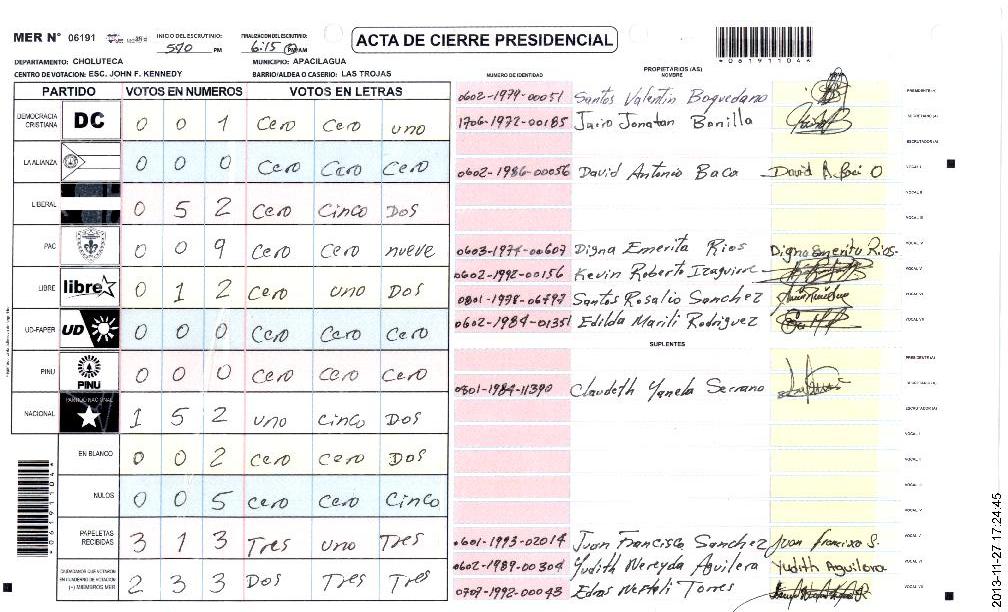 MER N° 06191
INICIO DEL ESCRUTINIO:
5:10 PM
FINALIZACION DEL ESCRUTINIO:
6:15 PM AM
ACTA DE CIERRE PRESIDENCIAL
*061911044*
DEPARTAMENTO: CHOLUTECA
MUNICIPIO: APACILAGUA
CENTRO DE VOTACION: ESC. JOHN F. KENNEDY
BARRIO/ALDEA O CASERIO: LAS TROJAS
PARTIDO VOTOS EN NUMEROS VOTOS EN LETRAS
DEMOCRACIA CRISTIANA DC 0 0 1 Cero Cero uno
LA ALIANZA 0 0 0 Cero Cero Cero
LIBERAL 0 5 2 Cero Cinco Dos
PAC 0 0 9 Cero Cero nueve
LIBRE libre 0 1 2 Cero uno Dos
UD-FAPER UD 0 0 0 Cero Cero Cero
PINU PINU 0 0 0 Cero Cero Cero
NACIONAL PARTIDO NACIONAL 1 5 2 uno Cinco Dos
EN BLANCO 0 0 2 Cero Cero Dos
NULOS 0 0 5 Cero Cero Cinco
PAPELETAS RECIBIDAS 3 1 3 Tres uno Tres
CIUDADANOS QUE VOTARON EN CUADERNO DE VOTACION (+) MIEMBROS MER 2 3 3 Dos Tres Tres
*061911044*
NUMERO DE IDENTIDAD
PROPIETARIOS (AS)
NOMBRE
0602-1979-00051 Santos Valentin Boquedano PRESIDENTE(A)
1706-1972-00185 Jairo Jonatan Bonilla SECRETARIO(A)
ESCRUTADOR(A)
0602-1986-00056 David Antonio Baca David A. Baca O VOCAL I
VOCAL II
VOCAL III
0603-1974-00607 Digna Emerita Rios Digna Emerita Rios. VOCAL IV
0602-1992-00156 Kevin Roberto Izaguirre VOCAL V
0801-1978-06797 Santos Rosalio Sanchez VOCAL VI
0602-1984-01351 Edilda Marili Rodriguez VOCAL VII
SUPLENTES
PRESIDENTE(A)
0801-1984-11390 Claudeth Yanela Serrano SECRETARIO(A)
ESCRUTADOR(A)
VOCAL I
VOCAL II
VOCAL III
VOCAL IV
0601-1993-02014 Juan Francisco Sanchez Juan francisco S. VOCAL V
0602-1989-00304 Yudith Nereyda Aguilera Yudith Aguilera VOCAL VI
0707-1992-00043 Edras Neftali Torres VOCAL VII
2013-11-27 17:24:45